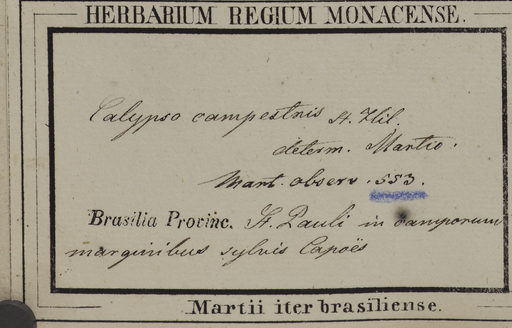 HERBARIUM REGIUM MONACENSE.
Calypso campestris St. Hil.
determ. Martio.
Mart. observ. 553.
Brasilia Provinc. St. Pauli in camporum
marginibus sylvis Capoës
Martii iter brasiliense.